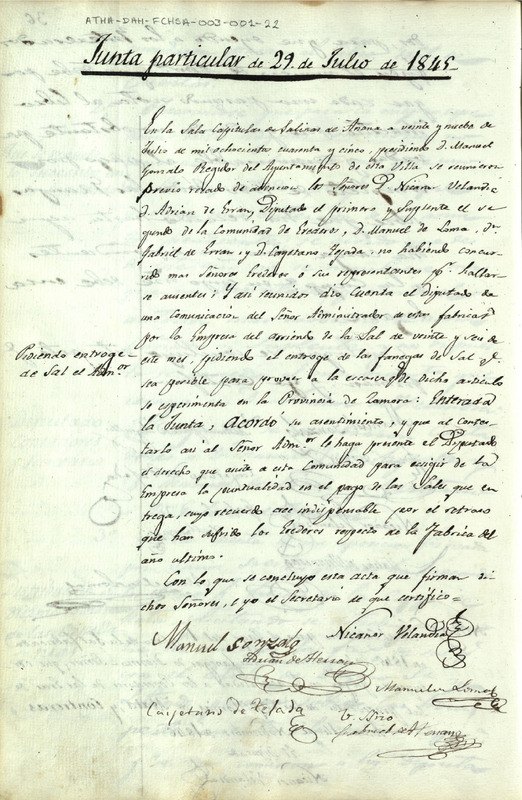 ATHA-DAH-FCHSA-003-001-22
Junta particular de 29 de Julio de 1845
En la Sala Capitular de Salinas de Añana a veinte y nueve de
Julio de mil ochocientos cuarenta y cinco, presidiendo D. Manuel
Gonzalo Regidor del Ayuntamiento de esta Villa se reunieron
previo recado de atencion los Señores D. Nicanor Velandia
D. Adrian de Erran, Diputado el primero y Suplente el se
gundo de la Comunidad de Erederos, D. Manuel de Loma, Dn
Gabriel de Erran, y D. Cayetano Tejada, no habiendo concur
rido mas Señores Erederos ó sus representantes pr. hallar
se ausentes; Y asi reunidos dio cuenta el Diputado de
una comunicacion del Señor Administrador de estas fabricas
por la Empresa del arriendo de la Sal de veinte y seis de
este mes, pidiendo el entroge de las fanegas de Sal qe.
sea posible para proveer a la escasez qe de dicho articulo
se esperimenta en la Provincia de Zamora: Enterada
la Junta, Acordó su asentimiento, y que al contes-
tarlo asi al Señor Admor. le haga presente el Diputado
el derecho que asiste a esta Comunidad para ecsigir de la
Empresa la puntualidad en el pago de las Sales que en
trega, cuyo recuerdo cree indispensable por el retraso
que han sufrido los Erederos respecto de la Fabrica del
año ultimo.
Pidiendo entroge
de Sal el Admor
Con lo que se concluyo esta acta que firman di
chos Señores, e yo el Secretario de que certifico=
Manuel Gonzalo
Nicanor Velandia
Adrian de Herran
Manuel de Loma
Cayetano de Tejada
Gabriel de Herran